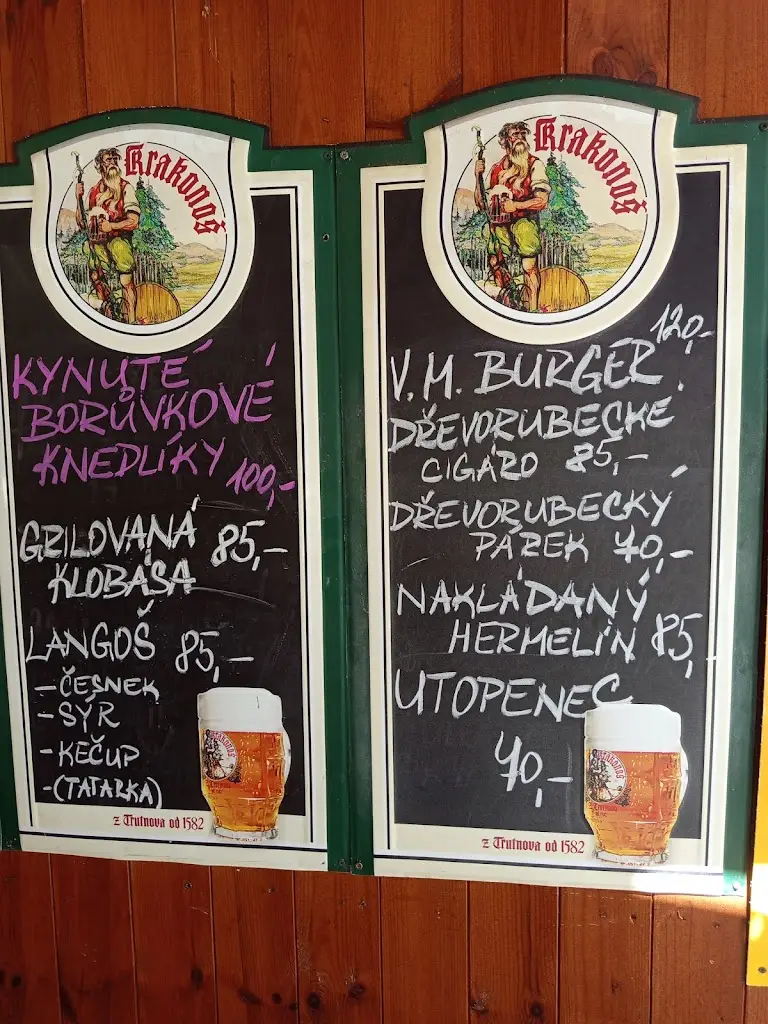 Krakonoš
KYNUTÉ
BORŮVKOVÉ
KNEDLÍKY 100,-
GRILOVANÁ 85,-
KLOBÁSA
LANGOŠ 85,-
-ČESNEK
-SÝR
-KEČUP
-(TATARKA)
z Trutnova od 1582
Krakonoš
120,-
V.M. BURGER
DŘEVORUBECKÉ
CIGÁRO 85,-
DŘEVORUBECKÝ
PÁREK 70,-
NAKLÁDANÝ
HERMELÍN 85,
UTOPENEC
70,-
Krakonoš
z Trutnova od 1582